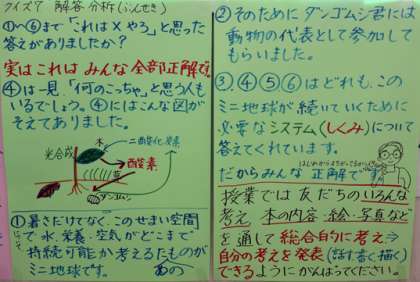 クイズ7 解答分析(ぶんせき)
①〜⑥まで「これは×やろ」と思った
答えがありましたか?
実はこれはみんな全部正解です。
④は一見、「何のこっちゃ」と思う人も
いるでしょう。④にはこんな図が
そえてありました。
木
二酸化炭素
光合成
酸素
ダンゴムシ
①暑さだけでなく、このせまい空間
で水、栄養、空気がどこまで
持続可能か考えるたものが
ミニ地球です。
②そのために ダンゴムシ君には
動物の代表として参加して
もらいました。
③、④⑤⑥はどれも、この
ミニ地球が続いていくために
必要なシステム(しくみ)について
答えてくれています。
だからみんな正解です
授業では友だちのいろんな
考え、本の内容・絵・写真など
を通して総合的に考え⇒
自分の考えを発表(話す・書く・描く)
できるようにがんばってください。